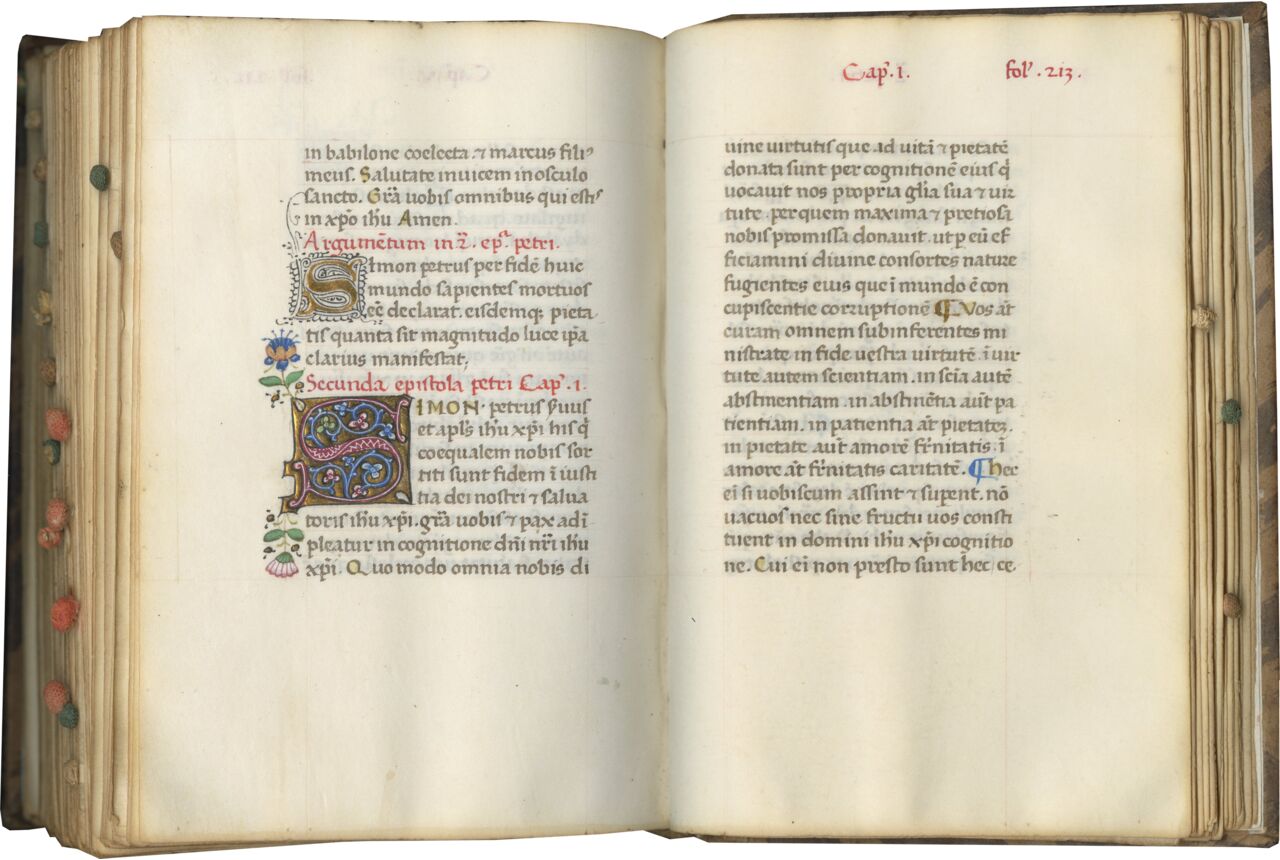 in babilone coelecta ⁊ marcus fili⁹
meus. Salutate inuicem in osculo
sancto. Gr̄a uobis omnibus qui estis
in xp̄o ih̄u Amen.
Argumētum in 2̄. ep̄. petri.
SImon petrus per fidē huic
mundo sapientes mortuos
eē declarat. eisdemq; pieta
tis quanta sit magnitudo luce ip̄a
clarius manifestat;
Secunda epistola petri Cap̄. 1.
SIMON petrus s̄uus
et apl̄s ih̄u xp̄i his q̄
coequalem nobis sor
titi sunt fidem ī iusti
tia dei nostri ⁊ salua
toris ih̄u xp̄i. gr̄a uobis ⁊ pax adī
pleatur in cognitione dn̄i nr̄i ih̄u
xp̄i. Quo modo omnia nobis di
Cap̄. 1. fol̄. 213.
uine uirtutis que ad uitā ⁊ pietatē
donata sunt per cognitionē eius q̄
uocauit nos propria gl̄ia sua ⁊ uir
tute. per quem maxima ⁊ pretiosa
nobis promissa donauit. ut p̱ eū ef
ficiamini diuine consortes nature
fugientes eius que ī mundo ē con
cupiscentie corruptionē ¶ Vos āt
curam omnem subinferentes mi
nistrate in fide uestra uirtutē. ī uir
tute autem scientiam. in sciā autē
abstinentiam. in abstinētia aūt pa
tientiam. in patientia āt pietatez.
in pietate aūt amorē fr̄nitatis. ī
amore āt fr̄nitatis caritatē. ¶ hec
ei si uobiscum assint ⁊ sup̱ent. nō
uacuos nec sine fructu uos consti
tuent in domini ih̄u xp̄i cognitio
ne. Cui ei non presto sunt hec ce